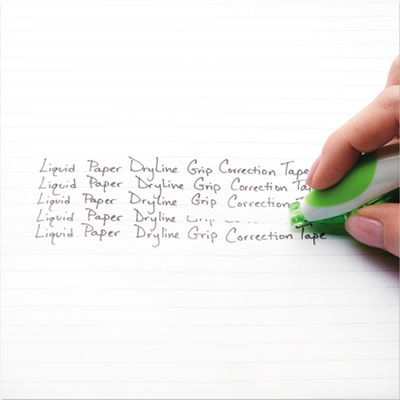 Liquid Paper DryLine Grip Correction Tape
Liquid Paper Dryline Grip Correction Ta
Liquid Paper Dryline Grip Correction
Liquid Paper Dryline
Liquid Paper Dryline Grip Correction Tape